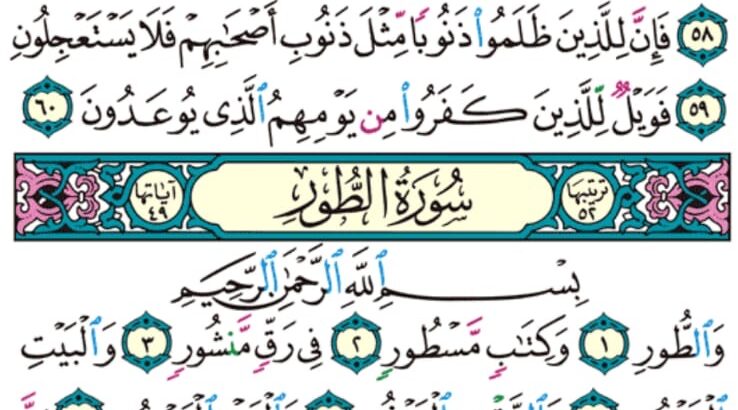 ٥٨ فَإِنَّ لِلَّذِينَ ظَلَمُوا۟ ذَنُوبًا مِّثْلَ ذَنُوبِ أَصْحَٰبِهِمْ فَلَا يَسْتَعْجِلُونِ
٥٩ فَوَيْلٌ لِّلَّذِينَ كَفَرُوا۟ مِن يَوْمِهِمُ ٱلَّذِى يُوعَدُونَ ٦٠
ترتيبها ٥٢ سُورَةُ الطُّورِ آياتها ٤٩
بِسْمِ ٱللَّهِ ٱلرَّحْمَٰنِ ٱلرَّحِيمِ
وَٱلطُّورِ ١ وَكِتَٰبٍ مَّسْطُورٍ ٢ فِى رَقٍّ مَّنشُورٍ ٣ وَٱلْبَيْتِ